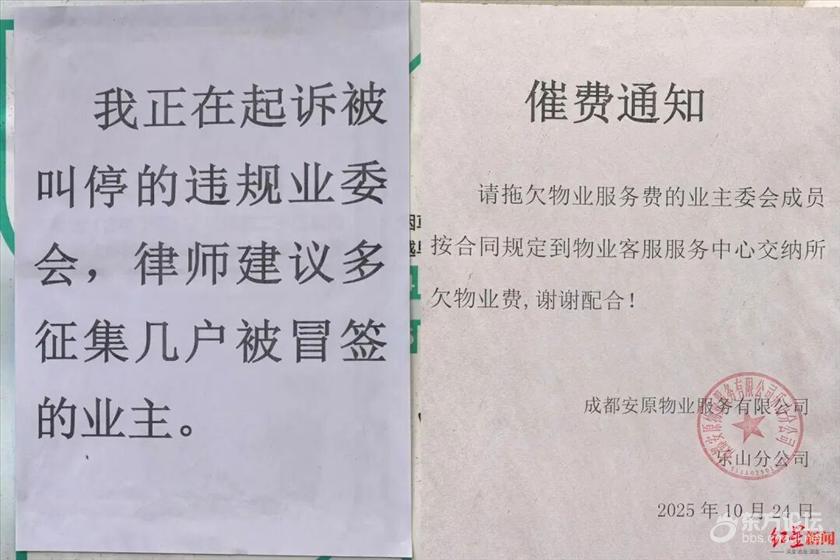 我正在起诉被
叫停的违规业委
会，律师建议多
征集几户被冒签
的业主。
催费通知
请拖欠物业服务费的业主委会成员
按合同规定到物业客服服务中心交纳所
欠物业费,谢谢配合！
成都安原物业服务有限公司
乐山分公司
2025年10月24日
东方论坛
红星新闻